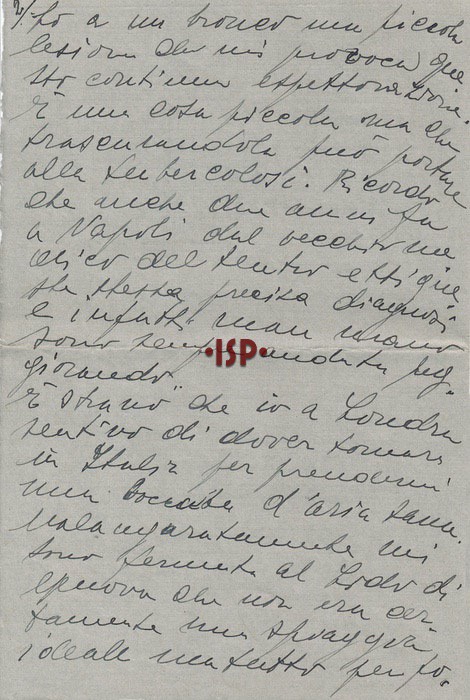 2/. Ho a un bronco una piccola
lesione che mi provoca que
sto continua espettorazione.
È una cosa piccola ma che
trascurandola può portare
alla tubercolosi. Ricordo
che anche due anni fa
a Napoli dal vecchio me
dico del teatro ebbi que
sta stessa precisa diagnosi
e infatti man mano
sono andata peg-
giorando.
È strano che io a Londra
sentivo di dover tornare
in Italia per prendermi
una boccata d'aria sana.
Malauguratamente mi
sono fermata al Lido di
che non era cer-
tamente una spiaggia
ideale ma tutto per fo.
•ISP•